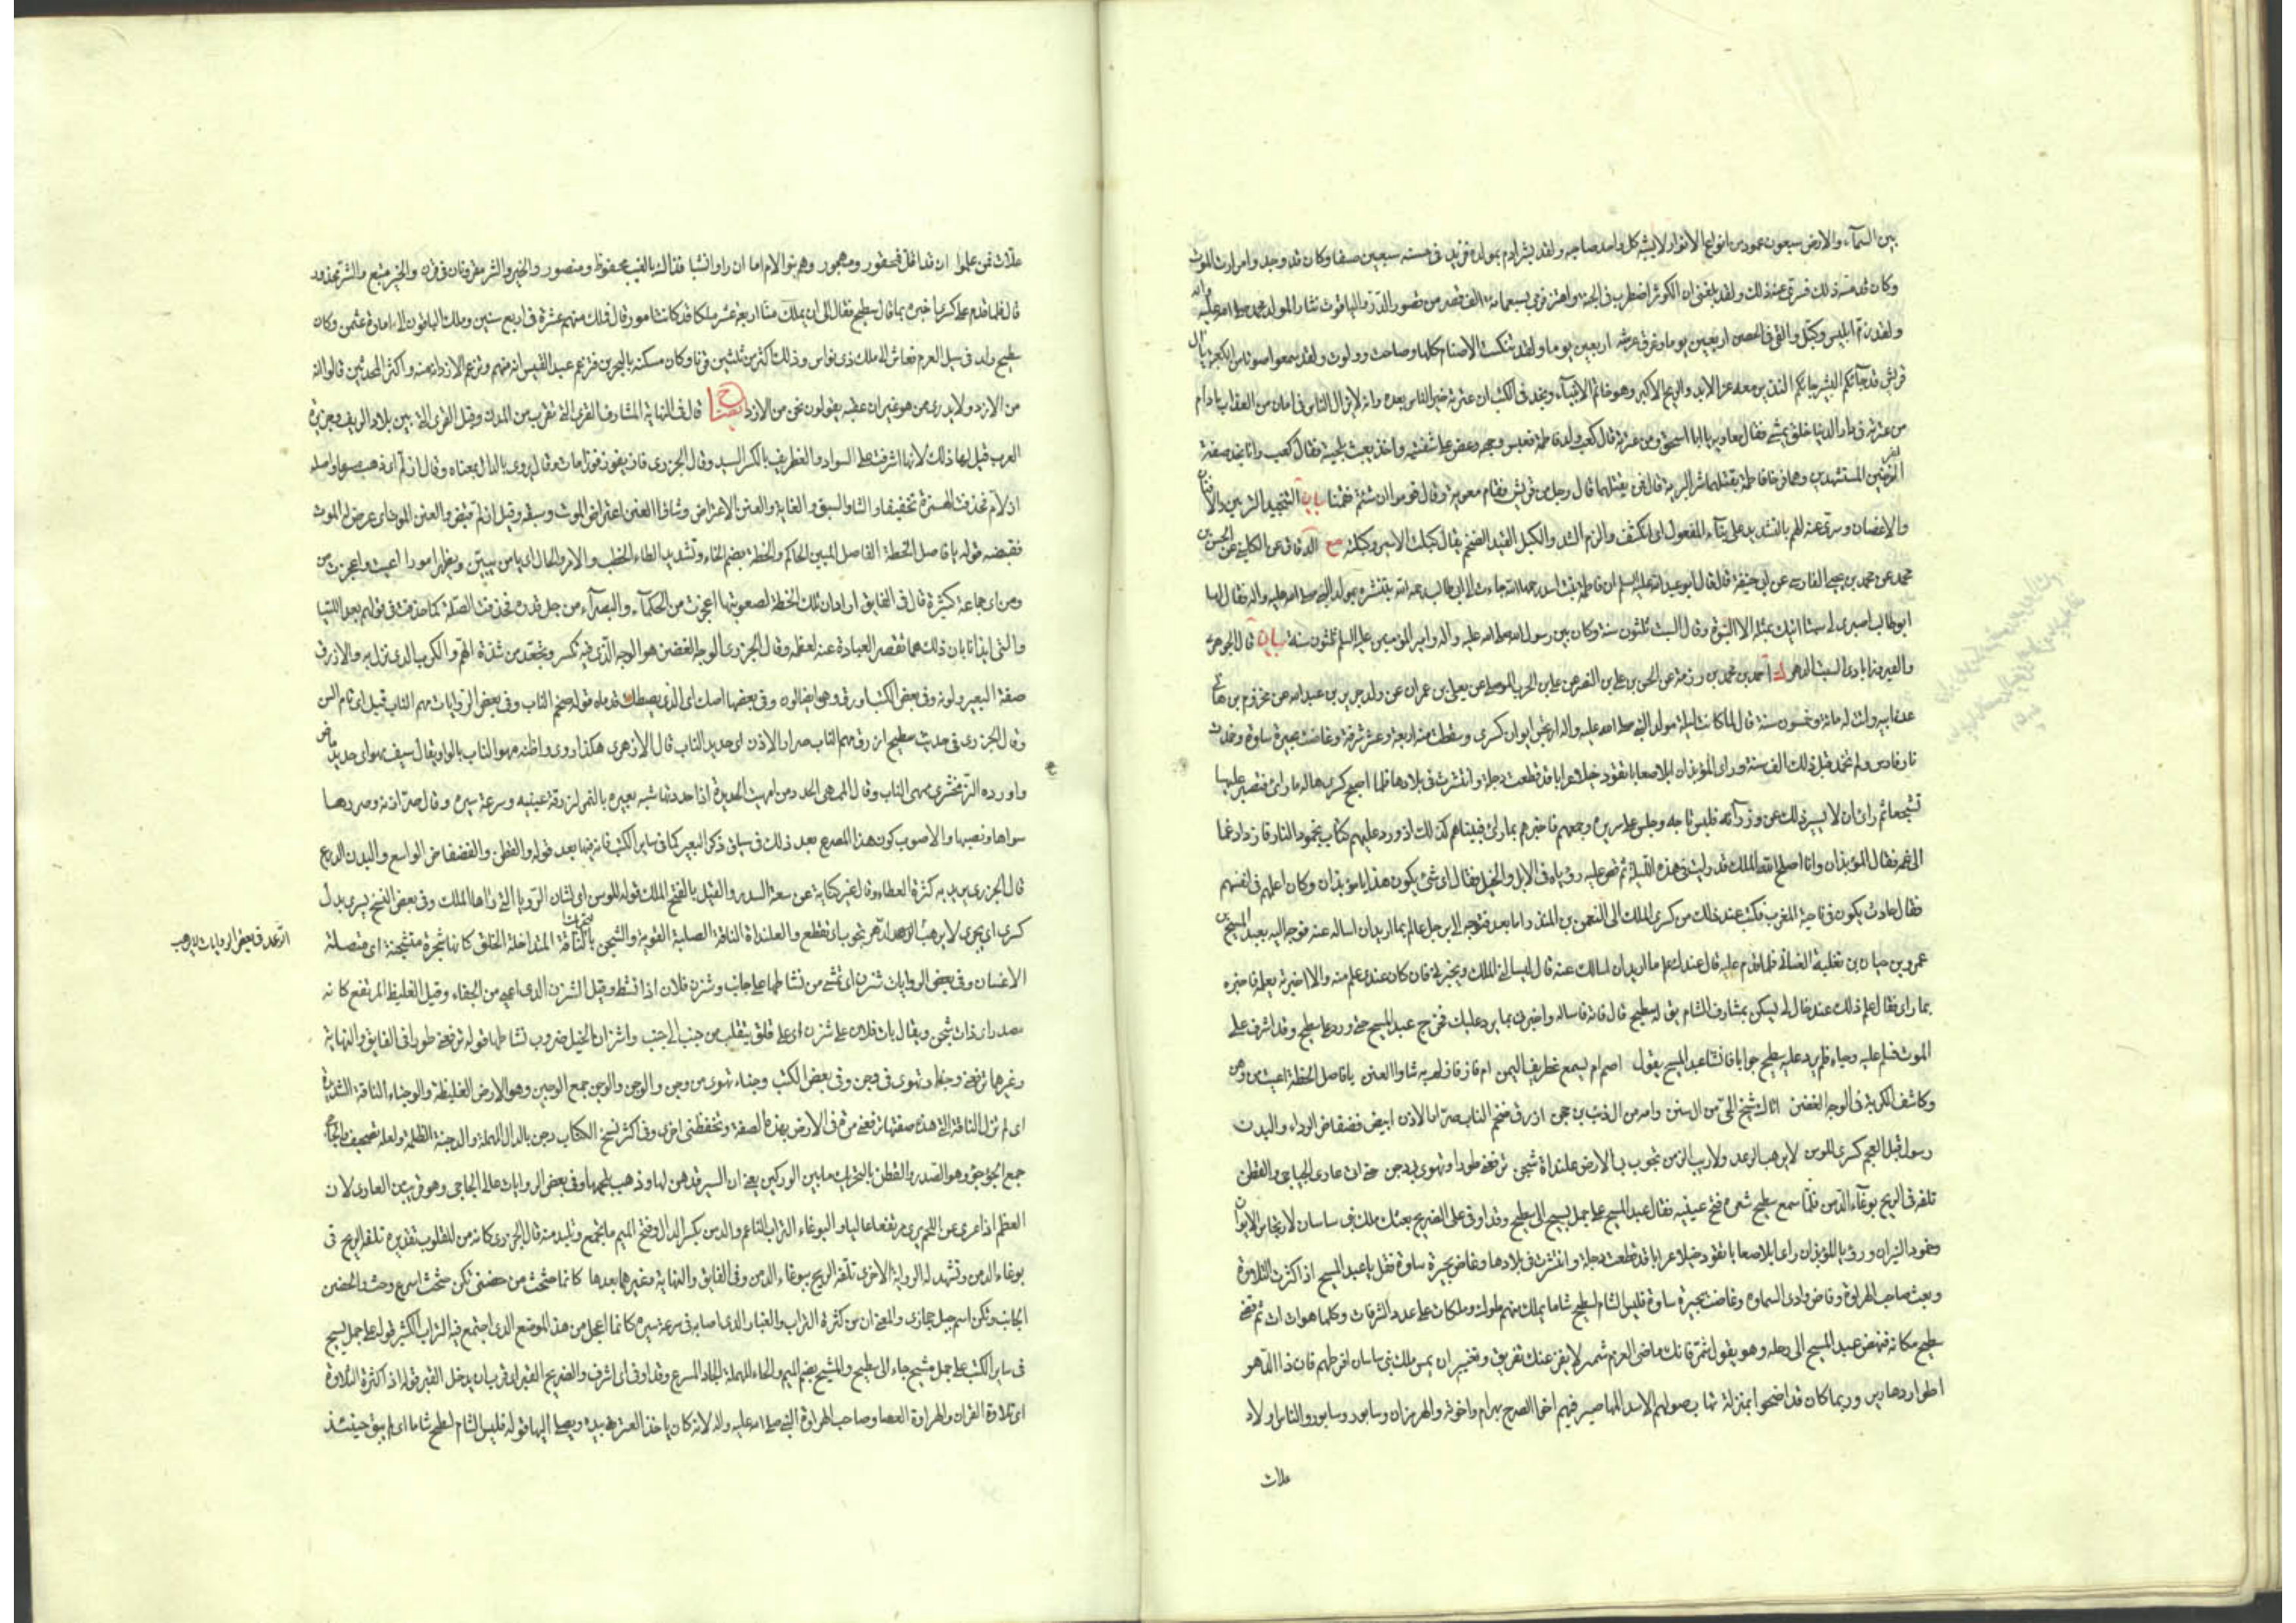 بين السمآء والارض سبعون عمود من انواع الانوار لا يشبه كل واحد صاحبه ولقد بشر ادم بمولده فزيد في حسنه سبعين ضعفا وكان قد وجد مرارة الموت
وكان قد مسه ذلك فسرى عنه ذلك ولقد بلغني ان الكوثر اضطرب في الجنة واهتز فرمى بسبعمائة الف قصر من قصور الدر والياقوت نثارا لمولد محمد صلى الله عليه واله
ولقد زم ابليس وكبل والقى في الحصن اربعين يوما وغرق عرشه اربعين يوما ولقد تنكست الاصنام كلها وصاحت وولولت ولقد سمعوا صوتا من الكعبة يا آل
قريش قد جآءكم البشير جاءكم النذير معه عز الابد والربح الاكبر وهو خاتم الانبيآء ونجد في الكتب ان عترته خير الناس بعده وانه لا يزال الناس في امان من العذاب ما دام
من عترته في دار الدنيا خلق يمشي فقال معاوية يا ابا اسحق ومن عترته قال كعب ولد فاطمة فعبس وجهه وعض على شفتيه واخذ يعبث بلحيته فقال كعب وانا نجد صفة
الفرخين المستشهدين وهما فرخا فاطمة يقتلهما شر البرية قال فمن يقتلهما قال رجل من قريش فقام معوية وقال قوموا ان شئتم فقمنا بيان التنجيد التزيين والافنان
والاغصان وسرى عنه الهم بالتشديد على بناء المفعول اى انكشف والزم الشد والكبل القيد الضخم يقال كبلت الاسير وكبلته مع الدقاق عن الكليني عن الحسن بن
محمد عن محمد بن يحيى الفارسي عن ابي حنيفة قال قال ابو عبد الله عليه السلم ان فاطمة بنت اسد رحمها الله جاءت الى ابي طالب رحمه الله تبشره بمولد النبي صلى الله عليه واله فقال لها
ابو طالب اصبرى لى سبتا اتيك بمثله الا النبوة وقال السبت ثلثون سنة وكان بين رسول الله صلى الله عليه واله وامير المومنين عليه السلم ثلثون سنة بيان قال الجوهرى
والفيروزابادى السبت الدهر ك احمد بن محمد بن رزمة عن الحسن بن علي بن النصر عن علي بن حرب الموصلي عن يعلى بن عمران من ولد جرير بن عبد الله عن مخزوم بن هانى
عن ابيه واتت له مائة وخمسون سنة قال لما كانت ليلة مولد النبي صلى الله عليه واله ارتجس ايوان كسرى وسقطت منه اربعة عشر شرفة وغاضت بحيرة ساوة وخمدت
نار فارس ولم تخمد قبل ذلك الف سنة وراى المؤبذان ابلا صعابا تقود خيلا عرابا قد قطعت دجلة وانتشرت في بلادها فلما اصبح كسرى هاله ما راى فتصبر عليها
تشجعا ثم راى ان لا يسر ذلك عن وزرآئه فلبس تاجه وجلس على سريره وجمعهم فاخبرهم بما راى فبيناهم كذلك اذ ورد عليهم كتاب بخمود النار فازداد غما
الى غمه فقال المؤبذان وانا اصلح الله الملك قد رايت في هذه الليلة ثم قص عليه رؤياه في الابل والخيل فقال اى شئ يكون هذا يا مؤبذان وكان اعلمهم في انفسهم
فقال حادث يكون في ناحية المغرب فكتب عند ذلك من كسرى الملك الى النعمن بن المنذر اما بعد فتوجه الى برجل عالم بما اريد ان اساله عنه فوجه اليه بعبد المسيح بن
عمرو بن حيان بن تغلبة الغساني فلما قدم عليه قال عندك علم ما اريد ان اسالك عنه قال ليسالني الملك ويخبرني فان كان عندى علم منه والا اخبرته بمن يعلمه فاخبره
بما راى فقال علم ذلك عند خال لى يسكن بمشارف الشام يق له سطيح قال فاته فاساله واخبرني بما يرد عليك فخرج عبد المسيح حتى ورد على سطيح وقد اشرف على
الموت فسلم عليه وحياه فلم يرد عليه سطيح جوابا فانشا عبد المسيح يقول اصم ام يسمع غطريف اليمن ام فاز فازلم به شاوا العنن يا فاصل الخطة اعيت من ومن
وكاشف الكربة في الوجه الغضن اتاك شيخ الحي من ال سنن وامه من ال ذئب بن حجن ازرق ضخم الناب صرار الاذن ابيض فضفاض الرداء والبدن
رسول قيل العجم كسرى للوسن لا يرهب الرعد ولا ريب الزمن تجوب بي الارض علنداة شجن ترفعني طورا وتهوى بي دجن حتى اتى عارى الجياجي والقطن
تلفه في الريح بوغآء الدمن فلما سمع سطيح شعره فتح عينيه فقال عبد المسيح على جمل يسيح الى سطيح وقد اوفى على الضريح بعثك ملك بني ساسان لارتجاس الايوان
وخمود النيران ورؤيا المؤبذان راى ابلا صعابا تقود خيلا عرابا قد قطعت دجلة وانتشرت في بلادها وغاض بحيرة ساوة فقل يا عبد المسيح اذا كثرت التلاوة
وبعث صاحب الهراوة وفاض وادى السماوة وغاضت بحيرة ساوة فليس الشام لسطيح شاما يملك منهم ملوك وملكات على عدد الشرفات وكلما هو ات ات ثم قضى
سطيح مكانه فنهض عبد المسيح الى رحله وهو يقول شمر فانك ماضى العزم شمير لا يفزعنك تفريق وتغيير ان يمس ملك بني ساسان افرطهم فان ذا الدهر
اطوار دهارير وربما كان قد اضحوا بمنزلة تهاب صولهم الاسد المهاصير فيهم اخوا الصرح بهرام واخوته والهرمزان وسابور وسابور والناس اولاد
علات
علات فمن علموا ان قد اقل فمحقور ومهجور وهم بنو الام اما ان راوا نشبا فذاك بالغيب محفوظ ومنصور والخير والشر مقرونان في قرن والخير متبع والشر محذور
قال فلما قدم على كسرى اخبره بما قال سطيح فقال الى ان يملك منا اربعة عشر ملكا قد كانت امور قال فملك منهم عشرة في اربع سنين وملك الباقون الى امارة عثمن وكان
سطيح ولد في سيل العرم فعاش الى ملك ذى نواس وذلك اكثر من ثلثين قرنا وكان مسكنه بالبحرين فتزعم عبد القيس انه منهم وتزعم الازد انه منهم واكثر المحدثين قالوا انه
من الازد ولا يدرى ممن هو غير ان عقبه يقولون نحن من الازد قال في النهاية المشارف القرى التي تقرب من المدن وقيل القرى التي بين بلاد الريف وجزيرة
العرب قيل لها ذلك لانها اشرفت على السواد والغطريف بالكسر السيد وقال الجزرى فاز يفوز فوزا مات وقال يروى بالدال بمعناه وقال ازلم اى ذهب مسرعا واصله
ازلام فحذفت الهمزة تخفيفا والشاو السبق والغاية والعنن الاعتراض وشاو العنن اعتراض الموت وسبقه وقيل ازلم قبض والعنن الموت اى عرض له الموت
فقبضه قوله يا فاصل الخطة الفاصل المبين الحاكم والخطة بضم الخاء وتشديد الطاء الخطب والامر والحال اى يا من يبين ويظهر امورا اعيت واعجزت من
ومن اى جماعة كثيرة قال في الفايق اراد ان تلك الخطة لصعوبتها اعجزت من الحكمآء والبصرآء من جل قدره فحذفت الصلة كما حذفت في قولهم بعد اللتيا
والتي ايذانا بان ذلك مما تقصر العبارة عنه لعظمه وقال الجزرى الوجه الغضن هو الوجه الذى فيه تكسر وتجعد من شدة الهم والكرب الذى نزل به والازرق
صفة البعير ولونه وفي بعض الكتب اورق وهو ايضا لون وفي بعضها اصك اى الذى يصطك قدماه قوله ضخم الناب وفي بعض الروايات مهم الناب قيل اى تام السن
وقال الجزرى في حديث سطيح ازرق مهم الناب صرار الاذن اى حديد الناب قال الازهرى هكذا روى واظنه مهو الناب بالواو يقال سيف مهو اى حديد ماض
واورده الزمخشرى ممهى الناب وقال الممهى المحدد من امهيت الحديدة اذا حددتها شبه بعيره بالنمر لزرقة عينيه وسرعة سيره وقال صر اذنه وصررها
سواها ونصبها والاصوب كون هذا المصرع بعد ذلك في سياق ذكر البعير كما في ساير الكتب فانه فيها بعد قوله والقطن والفضفاض الواسع والبدن الدرع
قال الجزرى يريد به كثرة العطاء وقال غيره كناية عن سعة الصدر والقيل بالفتح الملك قوله للوسن اى لشان الرؤيا التي راها الملك وفي بعض النسخ يسرى بدل
كسرى اى يجرى لا يرهب الرعد الدهر تجوب اى تقطع والعلنداة الناقة الصلبة القوية والشجن بالتحريك الناقة المتداخلة الخلق كانها شجرة متشجنة اى متصلة
الرعد في بعض الروايات لا يرهب
الاغصان وفي بعض الروايات شزن اى تمشي من نشاطها على جانب وشزن فلان اذا نشط وقيل الشزن الذى اعيى من الحفاء وقيل الغليظ المرتفع كانه
مصدر اى ذات شجن ويقال بات فلان على شزن اى على قلق يتقلب من جنب الى جنب واشزان الخيل ضروب نشاطها قوله ترفعني طورا في الفايق والنهاية
وغيرهما ترفعني وجنا وتهوى في وجن وفي بعض الكتب وجناء تهوى من وجن والوجن والوجين جمع الوجين وهو الارض الغليظة والوجناء الناقة الشديدة
اى لم تزل الناقة التي هذه صفتها ترفعني مرة في الارض بهذه الصفة وتخفضني اخرى وفي اكثر نسخ الكتاب دجن بالدال المهملة والدجنة الظلمة ولعله تصحيف والجاجى
جمع الجؤجؤ وهو الصدر والقطن بالتحريك ما بين الوركين يعني ان السير قد هزلها وذهب بلحمها وفي بعض الروايات عالى الجاجى وهو قريب من العارى لان
العظم اذا عرى من اللحم يرى مرتفعا عاليا والبوغاء التراب الناعم والدمن بكسر الدال وفتح الميم ما تجمع وتلبد منه قال الجزرى كانه من المقلوب تقديره تلفه الريح في
بوغاء الدمن وتشهد له الرواية الاخرى تلفه الريح ببوغاء الدمن وفي الفايق والنهاية وغيرهما بعدها كانما حثحث من حضني ثكن حثحث اسرع وحث والحضن
الجانب وثكن اسم جبل حجازى والمعنى ان من كثرة التراب والغبار الذى اصابه في سرعة سيره كانما اعجل من هذا الموضع الذى اجتمع فيه التراب الكثير قوله على جمل يسيح
في ساير الكتب على جمل مشيح جاء الى سطيح والمشيح بضم الميم والحاء المهملة الجاد المسرع وقد اوفى اى اشرف والضريح القبر اى قرب ان يدخل القبر قوله اذا كثرة التلاوة
اى تلاوة القران والهراوة العصا وصاحب الهراوة النبي صلى الله عليه واله لانه كان ياخذ العنزة بيده ويصلي اليها قوله فليس الشام لسطيح شاما اى لم يبق حينئذ